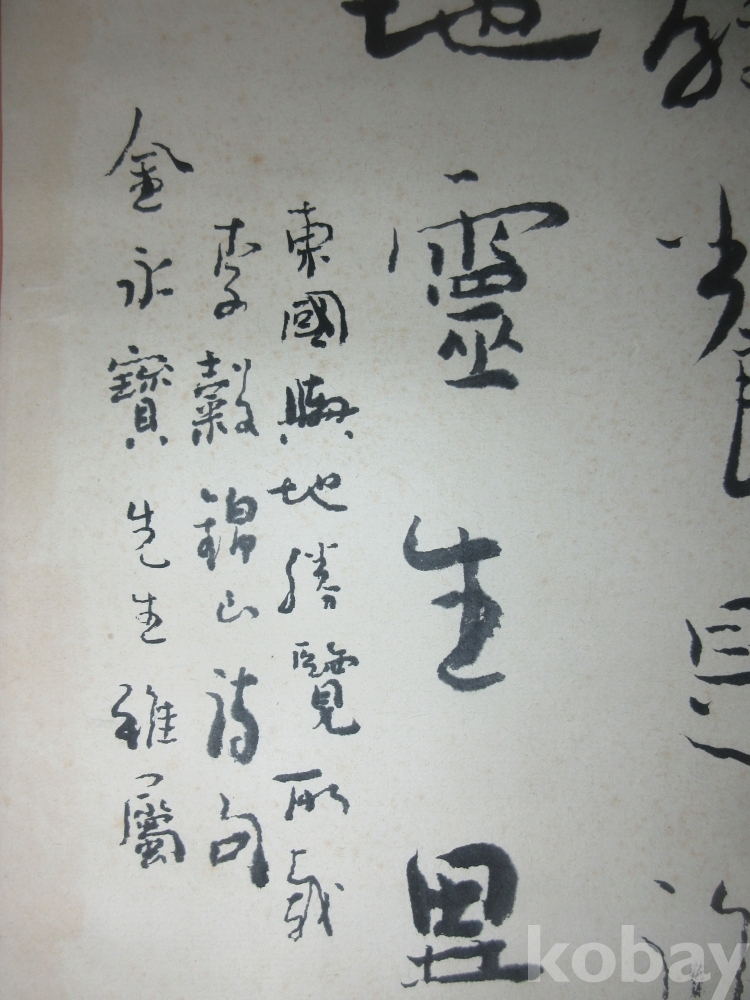 地靈生
東國輿地勝覽所載
李穀錦山詩句
金永寶先生雅屬
kobay